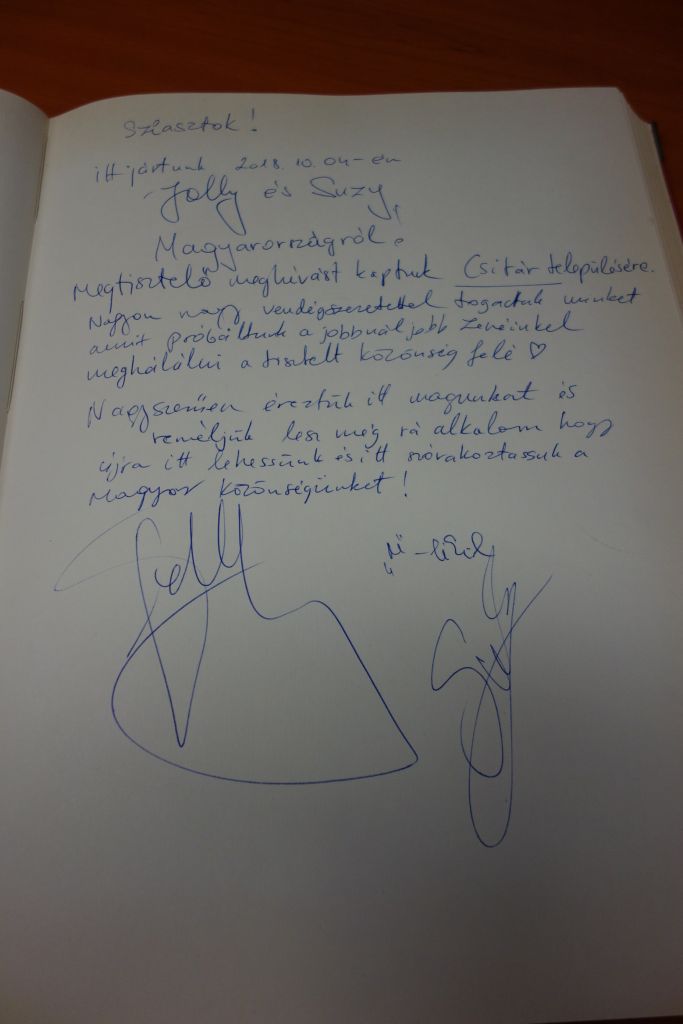 Sziasztok!
itt jártunk 2018. 10. 04-én
Jolly és Suzy,
Magyarországról!
Megtisztelő meghívást kaptunk Csitár településére.
Nagyon nagy vendégszeretettel fogadtak minket
amit próbáltunk a jobbnál jobb zenéinkel
meghálálni a tisztelt közönség felé ♡
Nagyszerűen éreztük itt magunkat és
reméljük lesz még rá alkalom hogy
újra itt lehessünk és itt szórakoztassuk a
Magyar közönségünket!
Jolly
Suzy